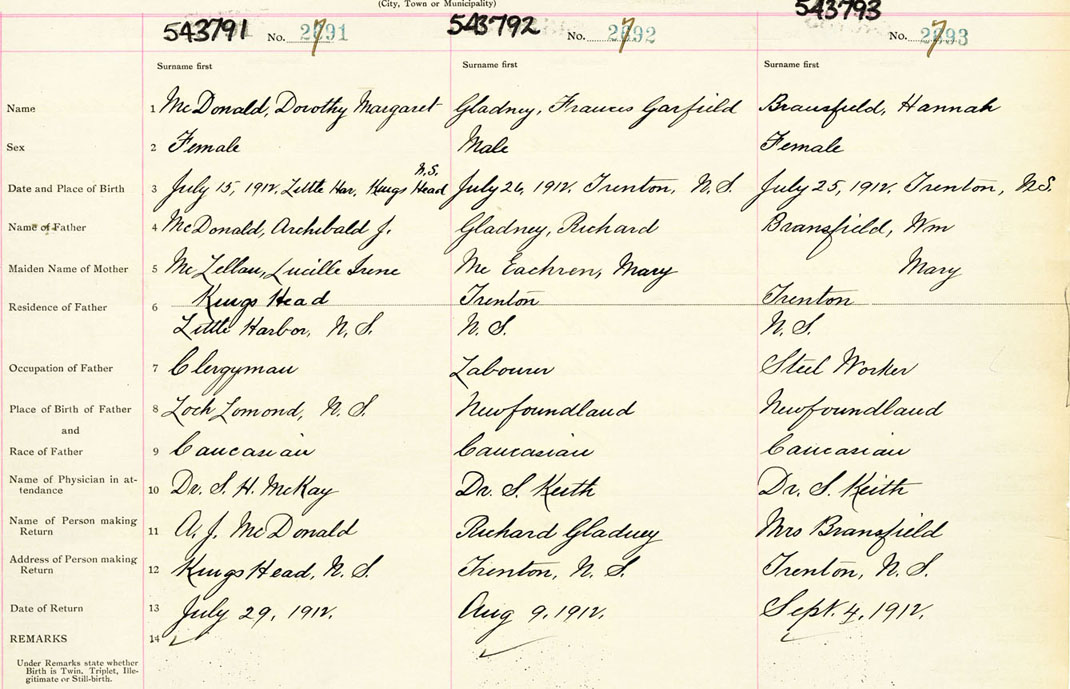 (City, Town or Municipality)
543791 No. 2891 543792 No. 2892 543793 No. 2893
Surname first Surname first Surname first
Name 1 McDonald, Dorothy Margaret Gladney, Frances Garfield Bransfield, Hannah
Sex 2 Female Male Female
N.S.
Date and Place of Birth 3 July 15, 1912, Little Har, Kings Head July 26, 1912. Trenton, N.S. July 25, 1912. Trenton, N.S.
Name of Father 4 McDonald, Archibald J. Gladney, Richard Bransfield, Wm
Maiden Name of Mother 5 McLellan, Lucille Irene McEachren, Mary Mary
Kings Head Trenton Trenton
Residence of Father 6
Little Harbor, N.S. N.S. N.S.
Occupation of Father 7 Clergyman Labourer Steel Worker
Place of Birth of Father 8 Loch Lomond, N.S. Newfoundland Newfoundland
and
Race of Father 9 Caucasian Caucasian Caucasian
Name of Physician in at-
tendance 10 Dr. S. H. McKay Dr. S. Keith Dr. S. Keith
Name of Person making
Return 11 A. J. McDonald Richard Gladney Mrs Bransfield
Address of Person making
Return 12 Kings Head, N.S. Trenton, N.S. Trenton, N.S.
Date of Return 13 July 29, 1912. Aug 9, 1912. Sept. 4, 1912.
REMARKS 14
Under Remarks state whether
Birth is Twin, Triplet, Ille-
gitimate or Still-birth.